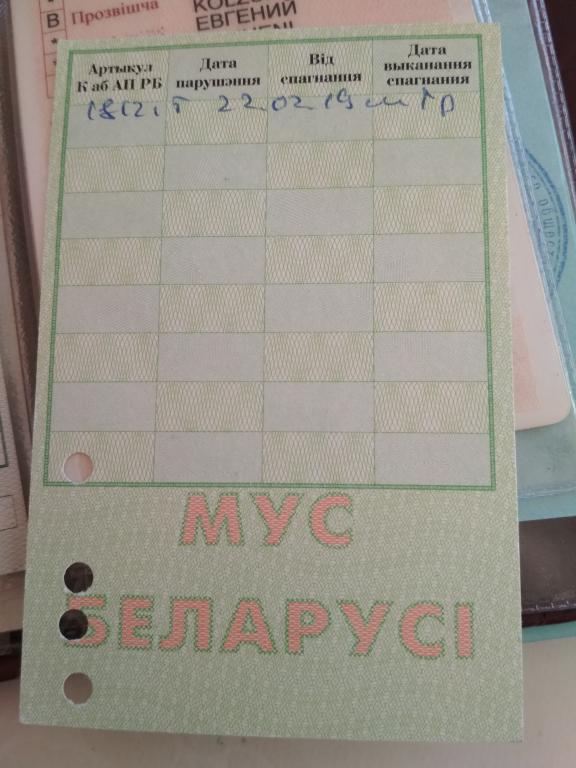 В Прозвішча
ЕВГЕНИЙ
Артыкул К аб АП РБ
Дата парушэння
Від спагнання
Дата выканання спагнання
22 02 19
МУС
БЕЛАРУСІ